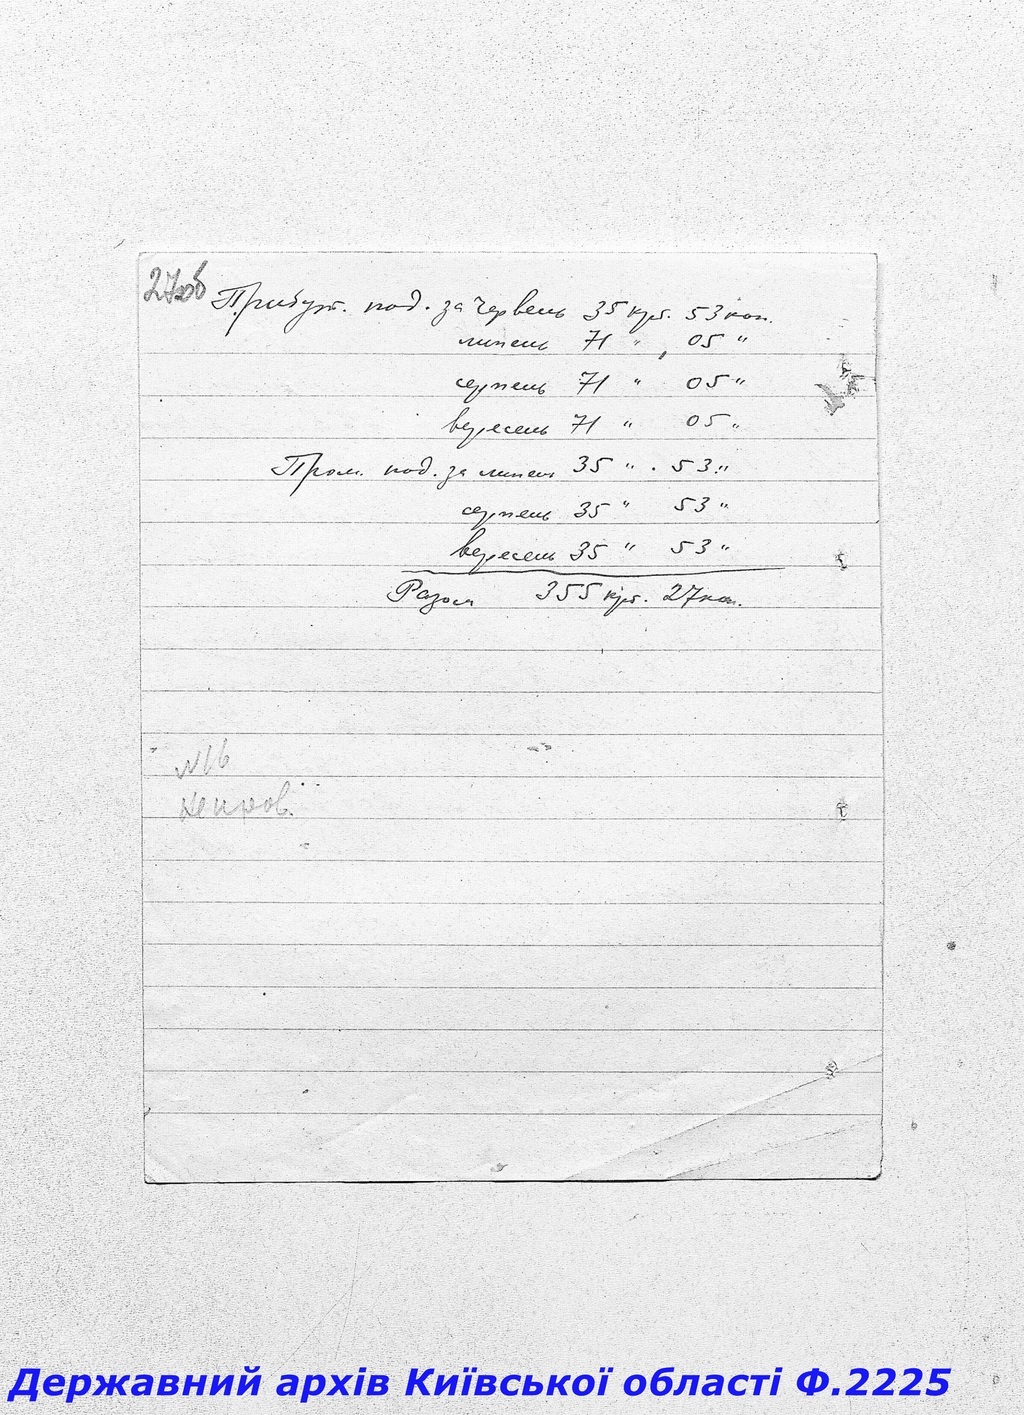 27об
Прибут. под. за червень 35 крб. 53 коп.
липень 71 " 05 "
серпень 71 " 05 "
вересень 71 " 05 "
Пром. под. за липень 35 " 53 "
серпень 35 " 53 "
вересень 35 " 53 "
Разом 355 крб. 27 коп.
N16
Державний архів Київської області Ф.2225